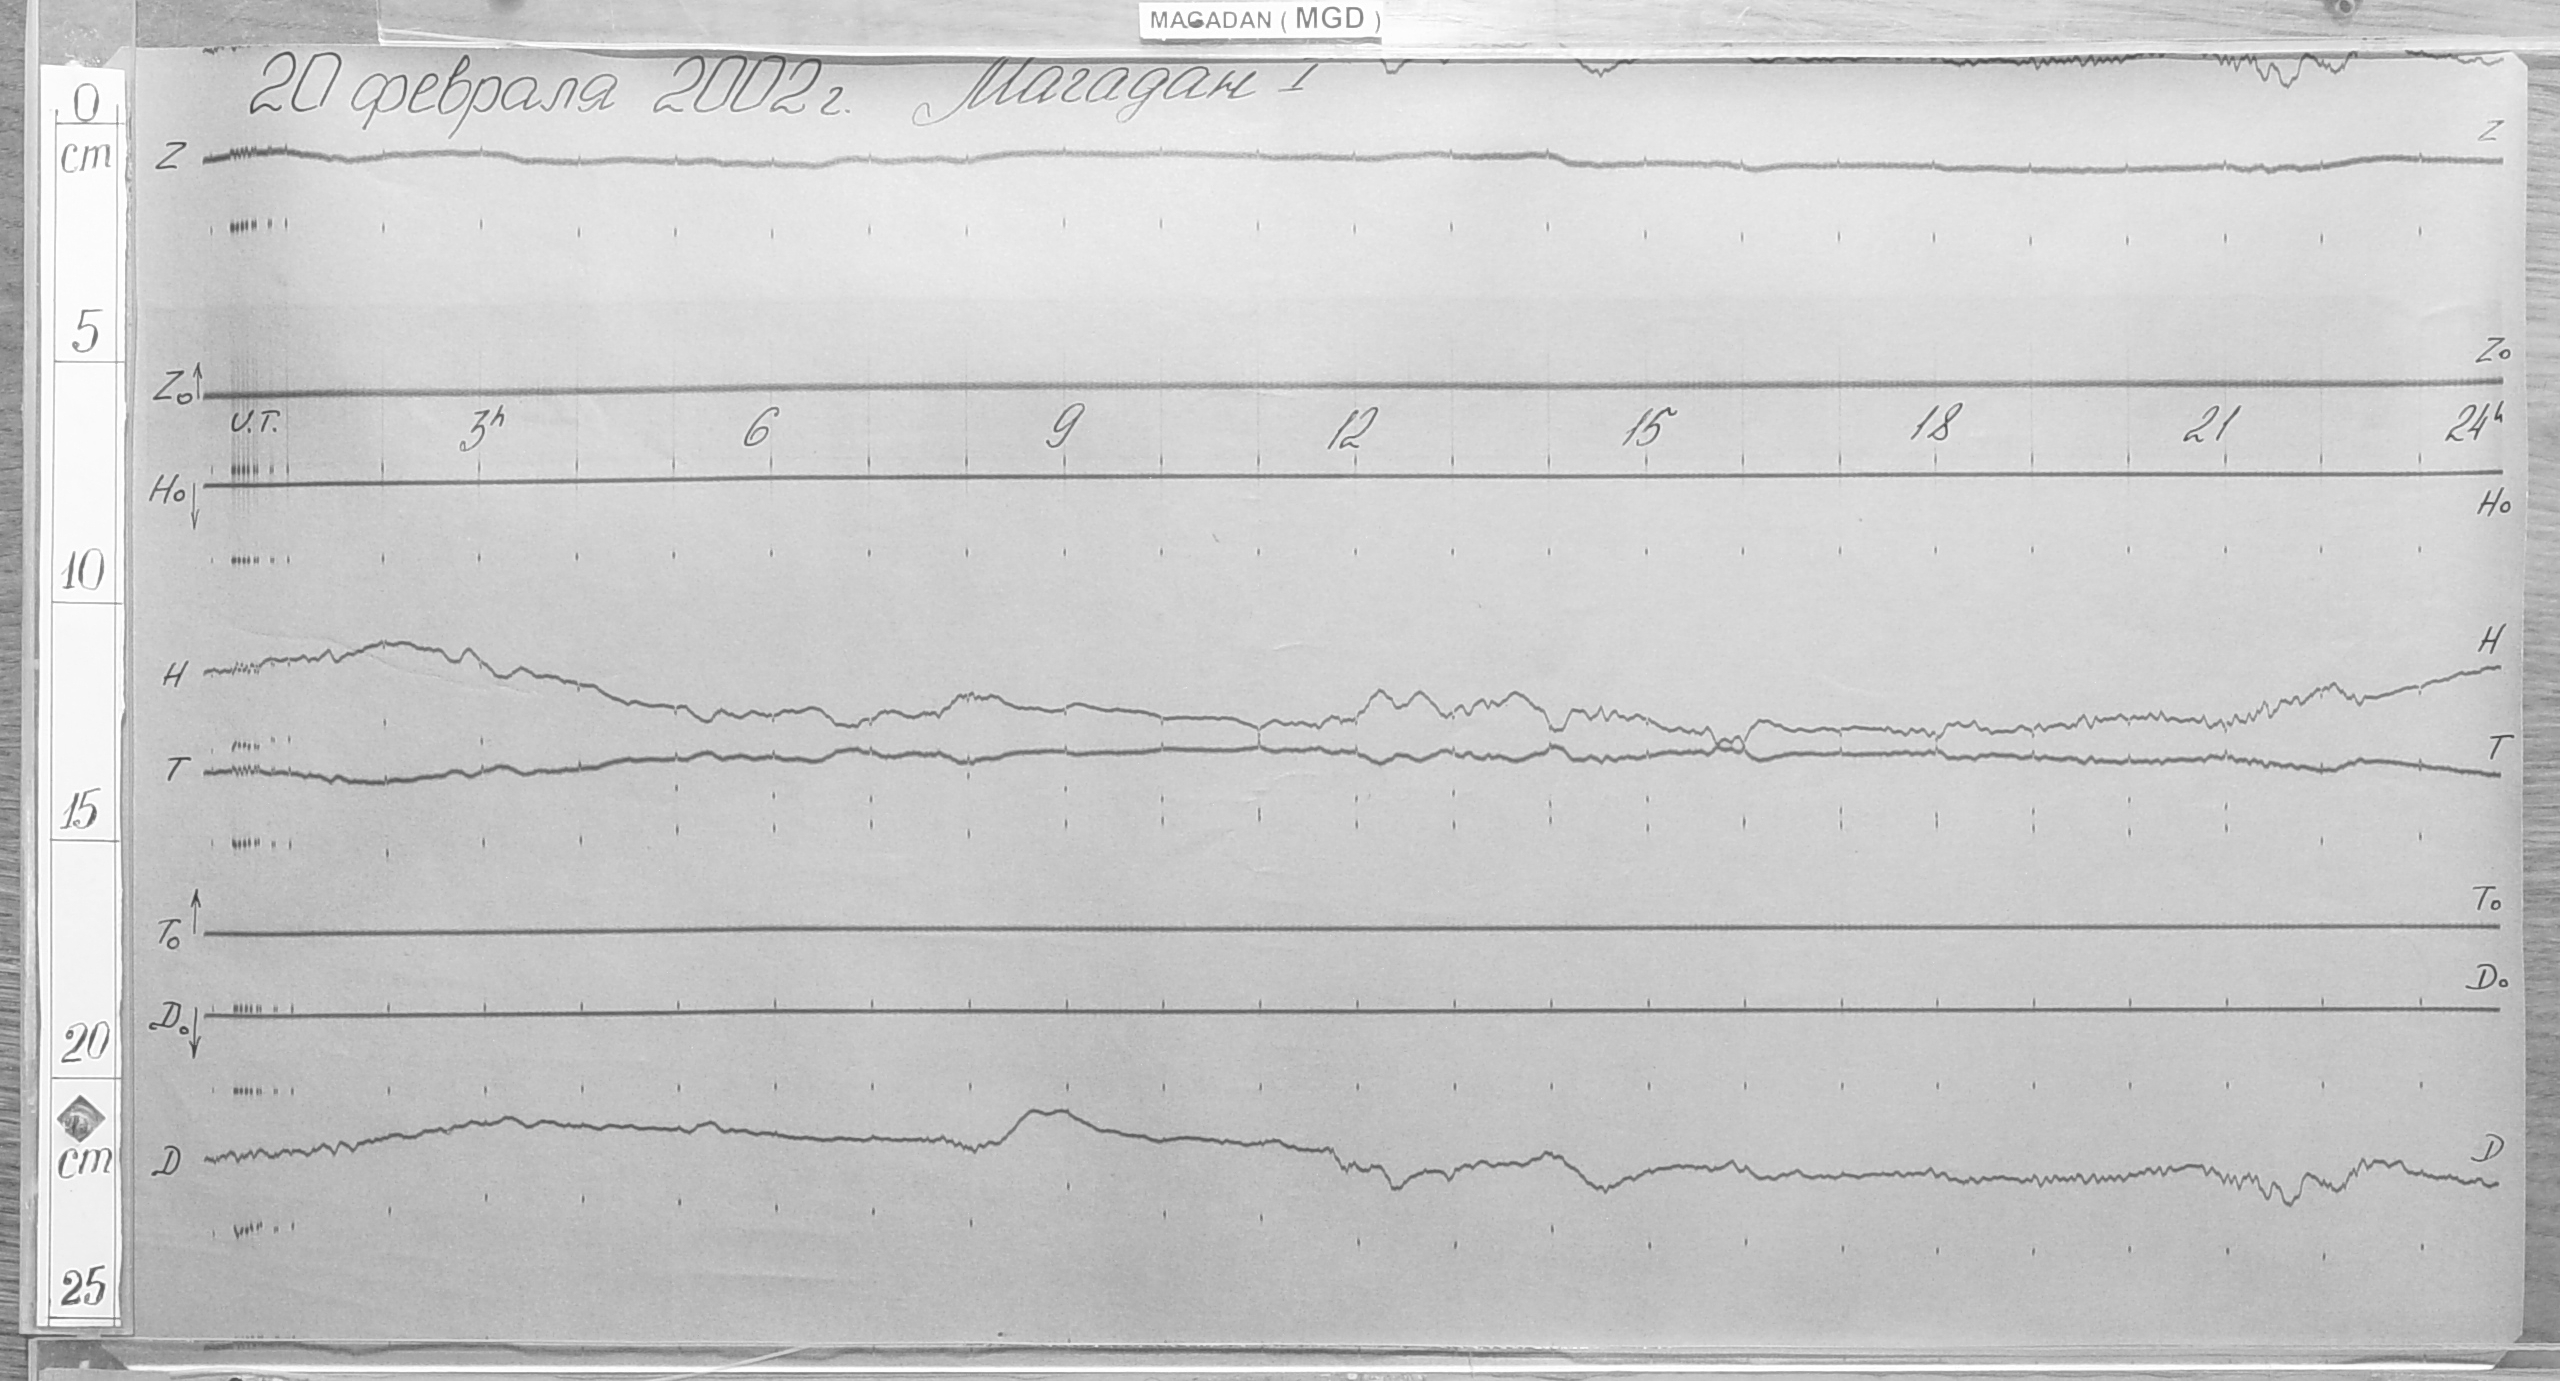 MAGADAN ( MGD )
20 февраля 2002 г. Магадан I
0
cm
5
10
15
20
cm
25
Z Z
Z₀ Z₀
U.T. 3ʰ 6 9 12 15 18 21 24ʰ
H₀ H₀
H H
T T
T₀ T₀
D₀ D₀
D D